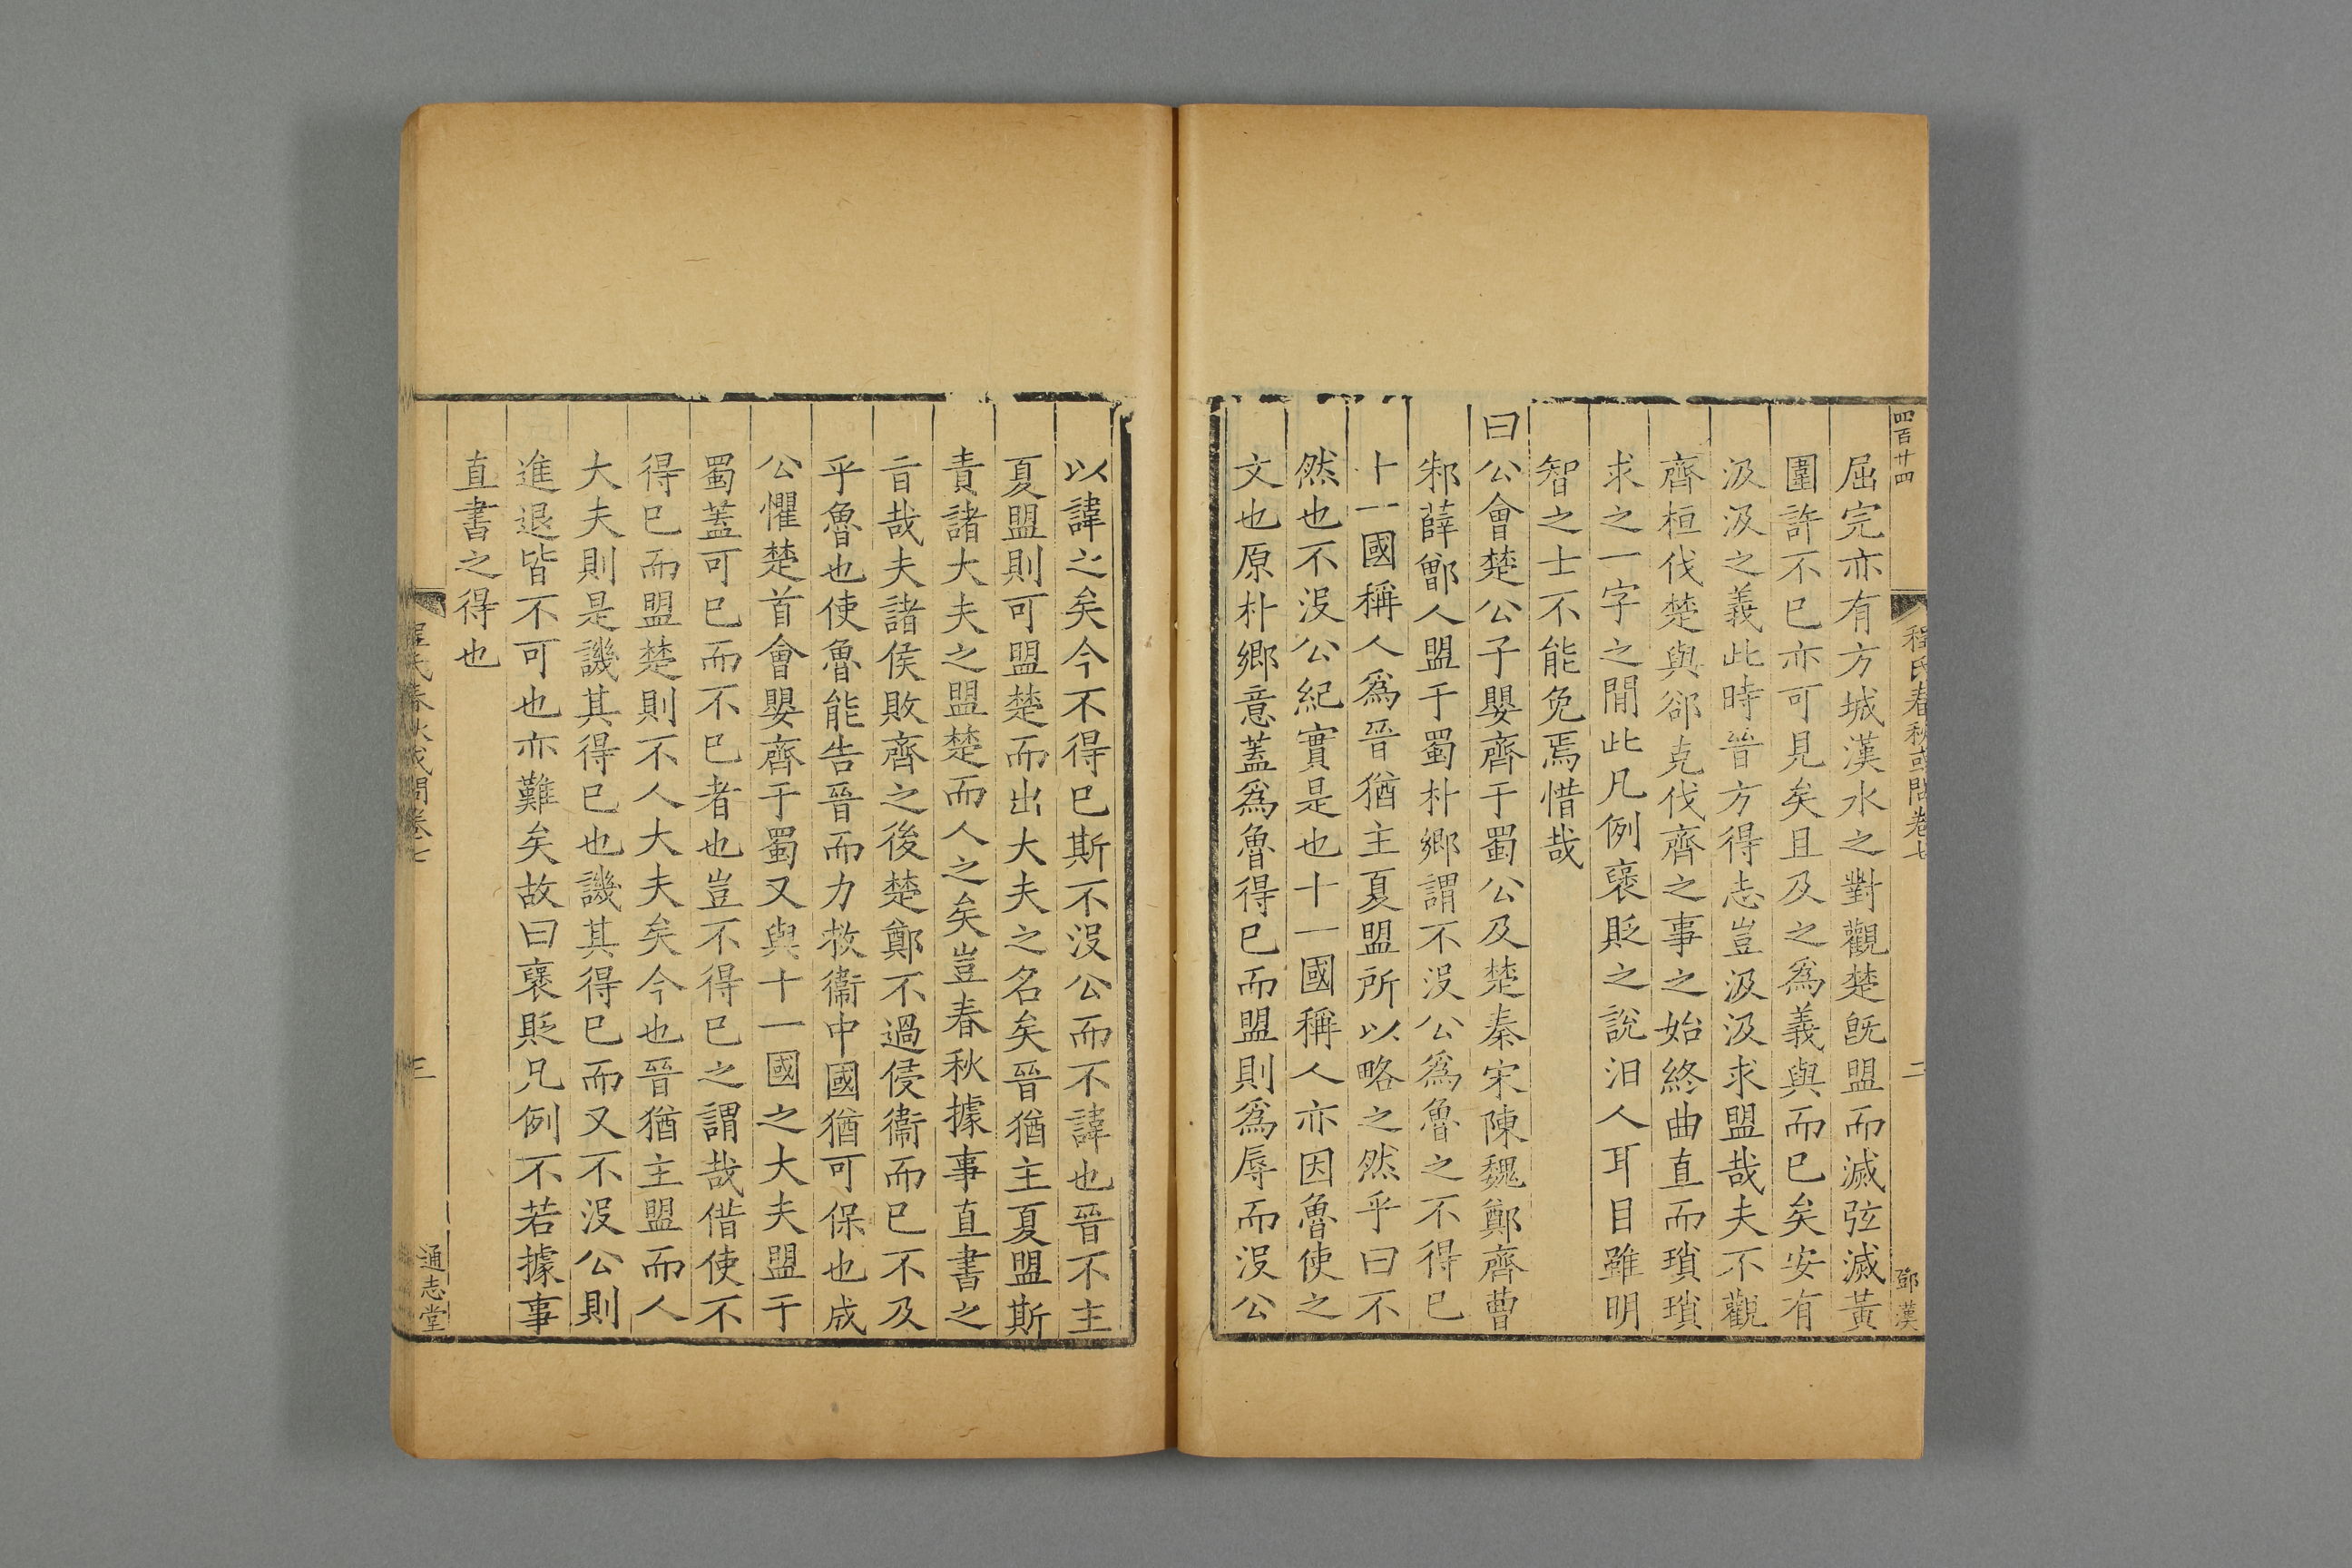 四百十四
程氏春秋或問卷七
二
鄧漢
屈完亦有方城漢水之對觀楚旣盟而滅弦滅黃
圍許不已亦可見矣且及之爲義與而已矣安有
汲汲之義此時晉方得志豈汲汲求盟哉夫不觀
齊桓伐楚與郤克伐齊之事之始終曲直而瑣瑣
求之一字之閒此凡例襃貶之說汨人耳目雖明
智之士不能免焉惜哉
曰公會楚公子嬰齊于蜀公及楚秦宋陳魏鄭齊曹
邾薛鄫人盟于蜀朴鄉謂不沒公爲魯之不得已
十一國稱人爲晉猶主夏盟所以略之然乎曰不
然也不沒公紀實是也十一國稱人亦因魯使之
文也原朴鄉意蓋爲魯得已而盟則爲辱而沒公
以諱之矣今不得已斯不沒公而不諱也晉不主
夏盟則可盟楚而出大夫之名矣晉猶主夏盟斯
責諸大夫之盟楚而人之矣豈春秋據事直書之
㫖哉夫諸侯敗齊之後楚鄭不過侵衞而已不及
乎魯也使魯能告晉而力救衞中國猶可保也成
公懼楚首會嬰齊于蜀又與十一國之大夫盟于
蜀蓋可已而不已者也豈不得已之謂哉偕使不
得已而盟楚則不人大夫矣今也晉猶主盟而人
大夫則是譏其得已也譏其得已而又不沒公則
進退皆不可也亦難矣故曰襃貶凡例不若據事
直書之得也
程氏春秋或問卷七
三
通志堂